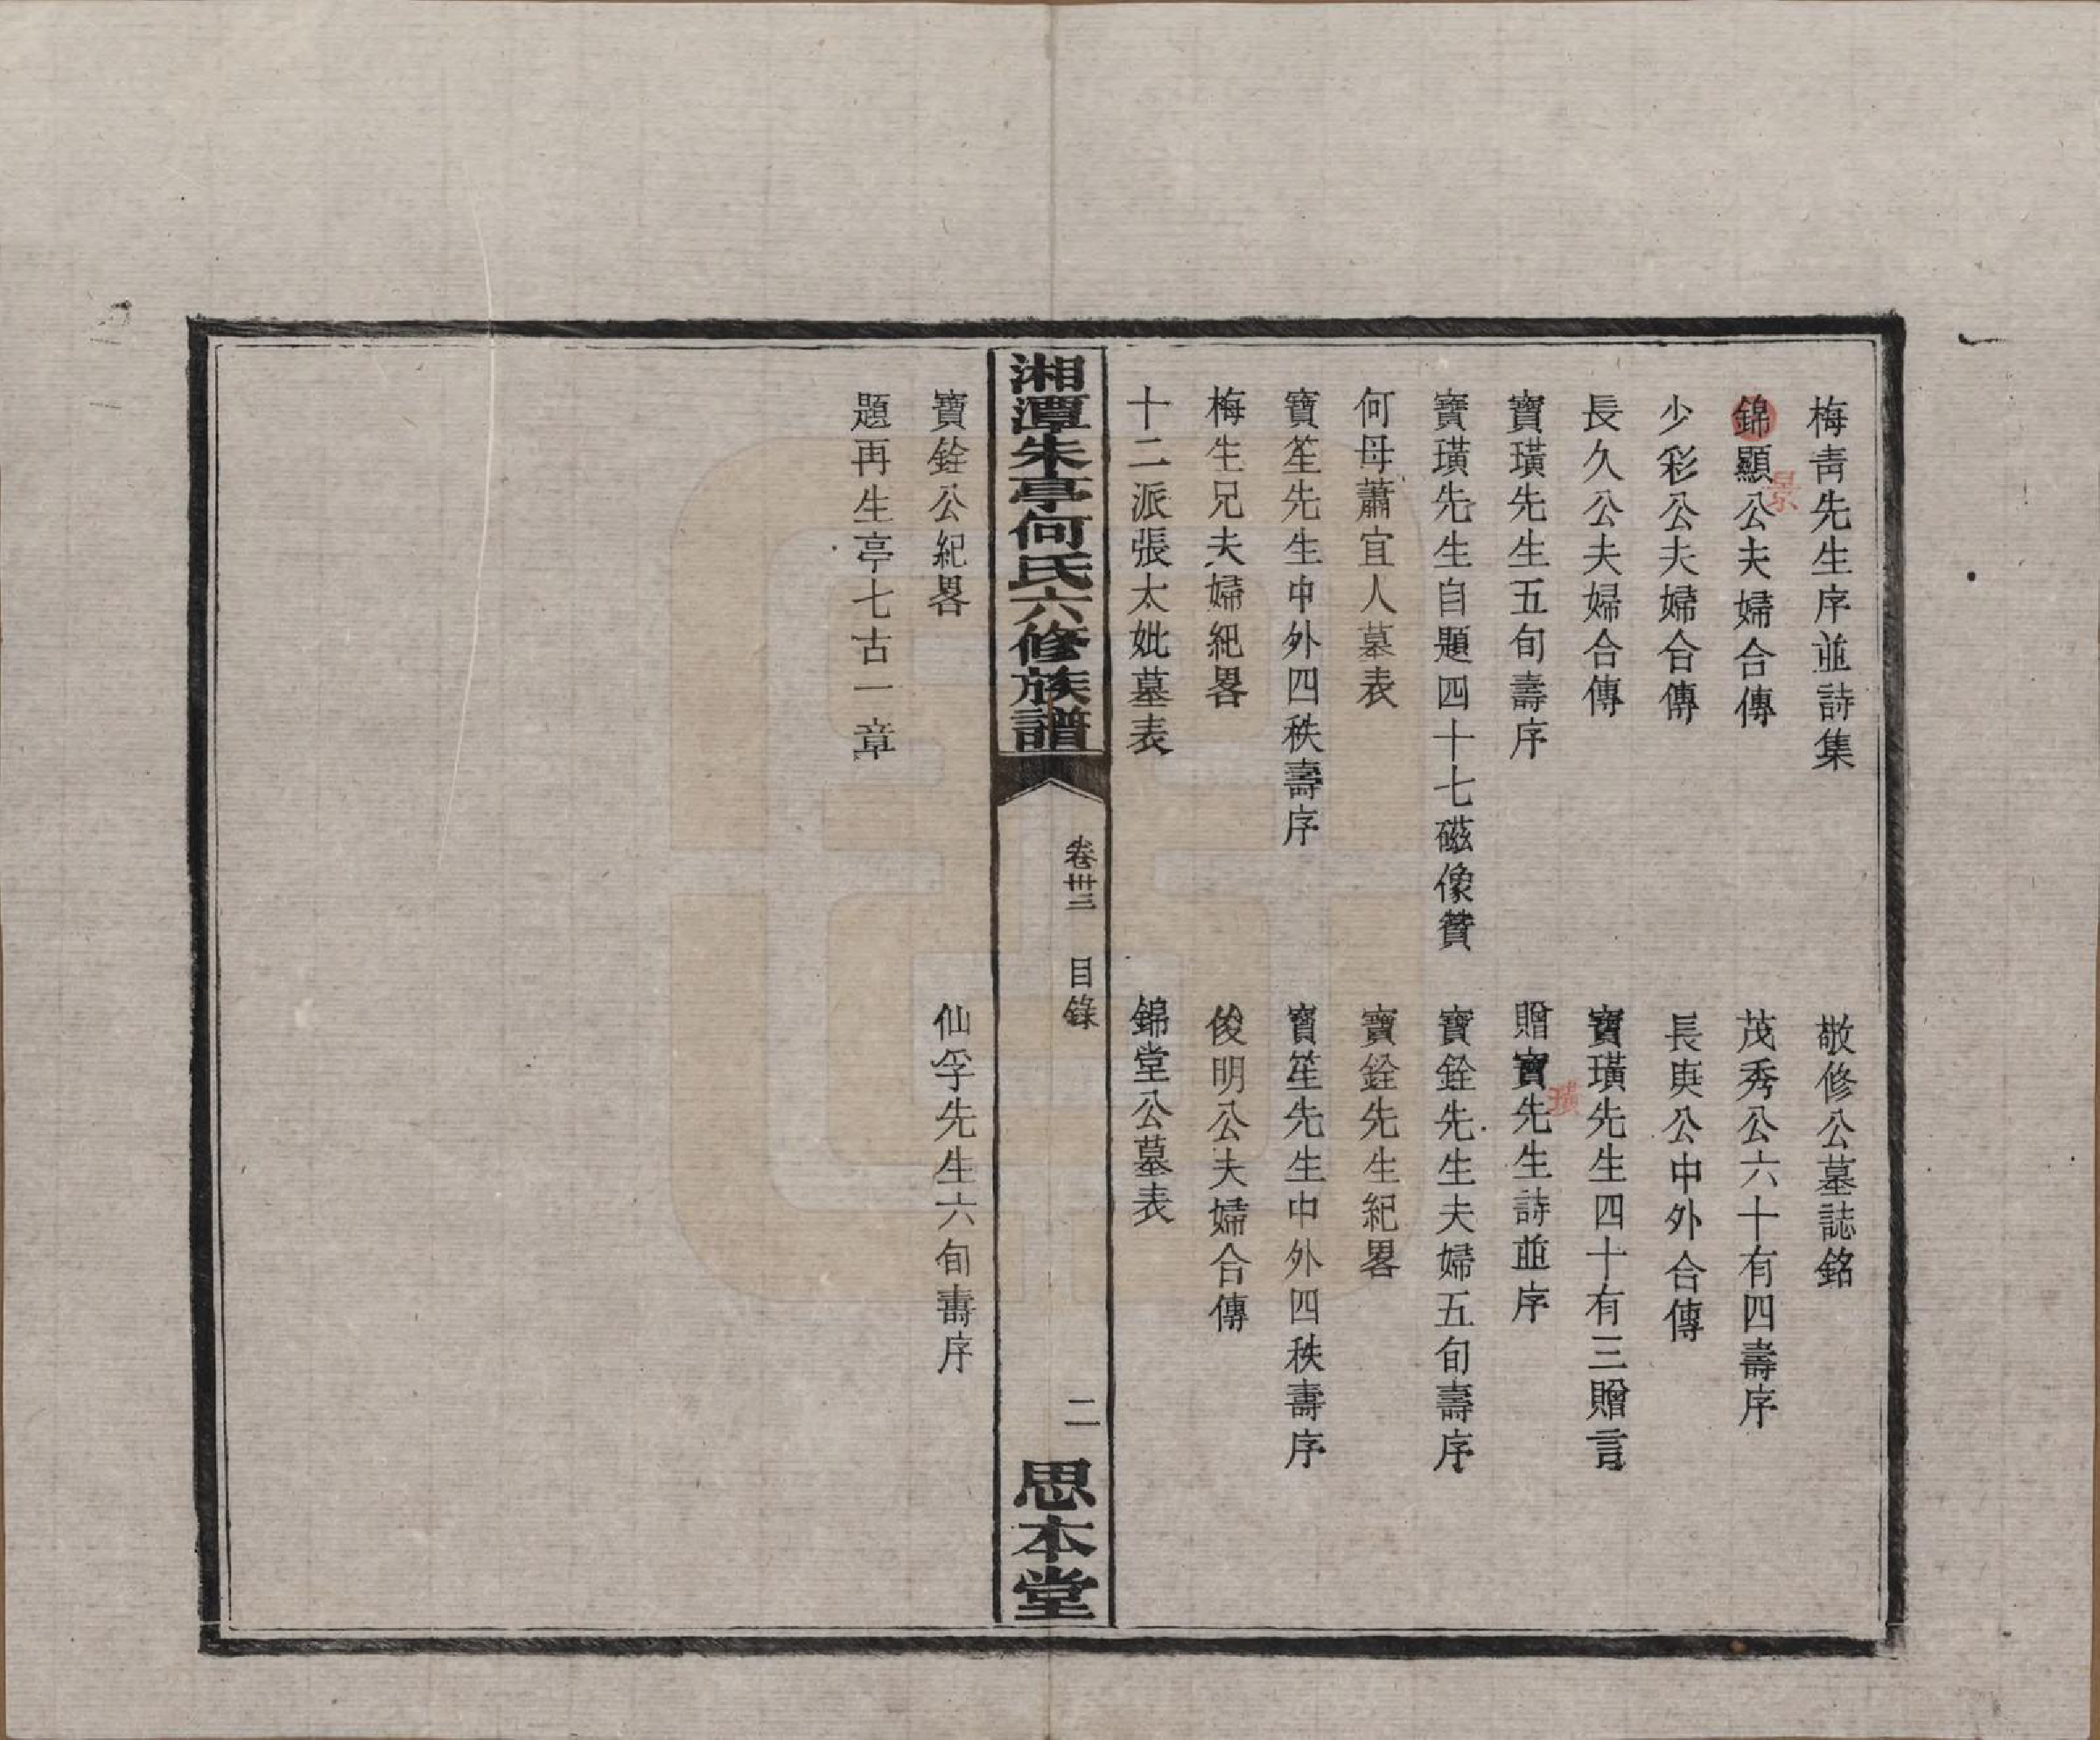 梅靑先生序並詩集
敬修公墓誌銘
錦顯公夫婦合傳
景
茂秀公六十有四壽序
少彩公夫婦合傳
長庾公中外合傳
長久公夫婦合傳
寶璜先生四十有三贈言
寶璜先生五旬壽序
贈寶先生詩並序
璜
寶璜先生自題四十七磁像贊
寶銓先生夫婦五旬壽序
何母蕭宜人墓表
寶銓先生紀畧
寶笙先生中外四秩壽序
寶笙先生中外四秩壽序
梅生兄夫婦紀畧
俊明公夫婦合傳
十二派張太妣墓表
錦堂公墓表
湘潭朱亭何氏六修族譜
卷卅三 目錄
二
思本堂
寶銓公紀畧
仙孚先生六旬壽序
題再生亭七古一章